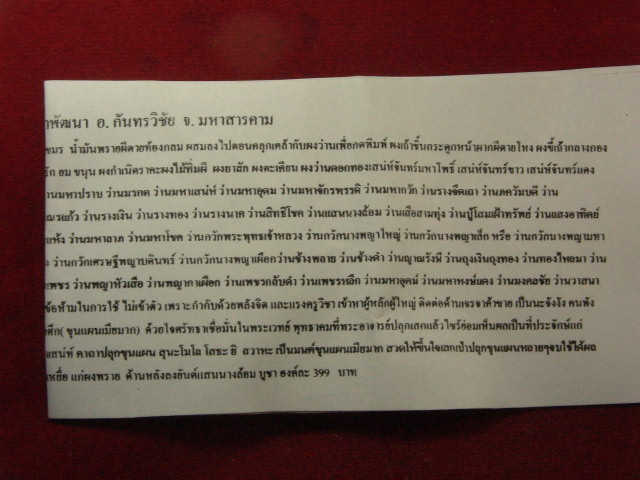 พัฒนา อ. กันทรวิชัย จ. มหาสารคาม
น้ำมันพรายผีตายท้องกลม ผสมลงไปตอนคลุกเคล้ากับผงว่านเพื่อกดพิมพ์ ผงเถ้าชิ้นกระดูกหน้าผากผีตายโหง ผงขี้เถ้ากลางกอง
รัก ยม ขนุน ผงกำเนิดราคะผงไม้ทิ่มผี ผงยาสัก ผงตะเคียน ผงว่านดอกทองเสน่ห์จันทร์มหาโพธิ์ เสน่ห์จันทร์ขาว เสน่ห์จันทร์แดง
ว่านมหาปราบ ว่านมรกต ว่านมหาเสน่ห์ ว่านมหาอุดม ว่านมหาจักรพรรดิ ว่านมหากวัก ว่านรางจืดเถา ว่านภควัมบดี ว่าน
ว่านรางเงิน ว่านรางทอง ว่านรางนาค ว่านสิทธิโชค ว่านแสนนางล้อม ว่านเสือสามทุ่ง ว่านปู่โสมเฝ้าทรัพย์ ว่านแสงอาทิตย์
ว่านมหาลาภ ว่านมหาโชค ว่านกวักพระพุทธเจ้าหลวง ว่านกวักนางพญาใหญ่ ว่านกวักนางพญาเล็ก หรือ ว่านกวักนางพญามหา
ว่านกวักเศรษฐีพญาบดินทร์ ว่านกวักนางพญาเผือกว่านช้างพลาย ว่านช้างดำ ว่านญาณรังษี ว่านถุงเงินถุงทอง ว่านทองไหลมา ว่าน
เพชร ว่านพญาหัวเสือ ว่านพญากาเผือก ว่านเพชรกลับดำ ว่านเพชรหลีก ว่านมหาอุตม์ ว่านมหาหงษ์แดง ว่านมงคลชัย ว่านวาสนา
ข้อห้ามในการใช้ ไม่เข้าตัว เพราะกำกับด้วยพลังจิต และแรงครูวิชา เข้าหาผู้หลักผู้ใหญ่ ติดต่อด้านเจรจาค้าขาย เป็นนะจังงัง คนฟัง
( ขุนแผนเมียมาก) ด้วยใจศรัทธาเชื่อมั่นในพระเวทย์ พุทธาคมที่พระอาจารย์ปลุกเสกแล้วไซร้ย่อมเห็นผลเป็นที่ประจักษ์แก่
เสน่ห์ คาถาปลุกขุนแผน สุนะโมโล โสธะ ยิ สวาหะ เป็นมนต์ขุนแผนเมียมาก สวดให้ขึ้นใจเสกเป่าปลุกขุนแผนหลายๆจบใช้ได้ผล
เหยื่อ แก่ผงพราย ด้านหลังลงยันต์แสนนางล้อม บูชา องค์ละ 399 บาท